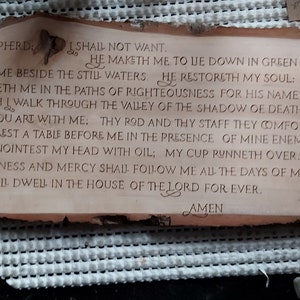 PHERD; I SHALL NOT WANT.
HE MAKETH ME TO LIE DOWN IN GREEN
ME BESIDE THE STILL WATERS HE RESTORETH MY SOUL:
ETH ME IN THE PATHS OF RIGHTEOUSNESS FOR HIS NAME
I WALK THROUGH THE VALLEY OF THE SHADOW OF DEAT
OU ART WITH ME; THY ROD AND THY STAFF THEY COMFO
EST A TABLE BEFORE ME IN THE PRESENCE OF MINE ENEM
NOINTEST MY HEAD WITH OIL; MY CUP RUNNETH OVER.
NESS AND MERCY SHALL FOLLOW ME ALL THE DAYS OF M
LL DWELL IN THE HOUSE OF THE LORD FOR EVER.
AMEN